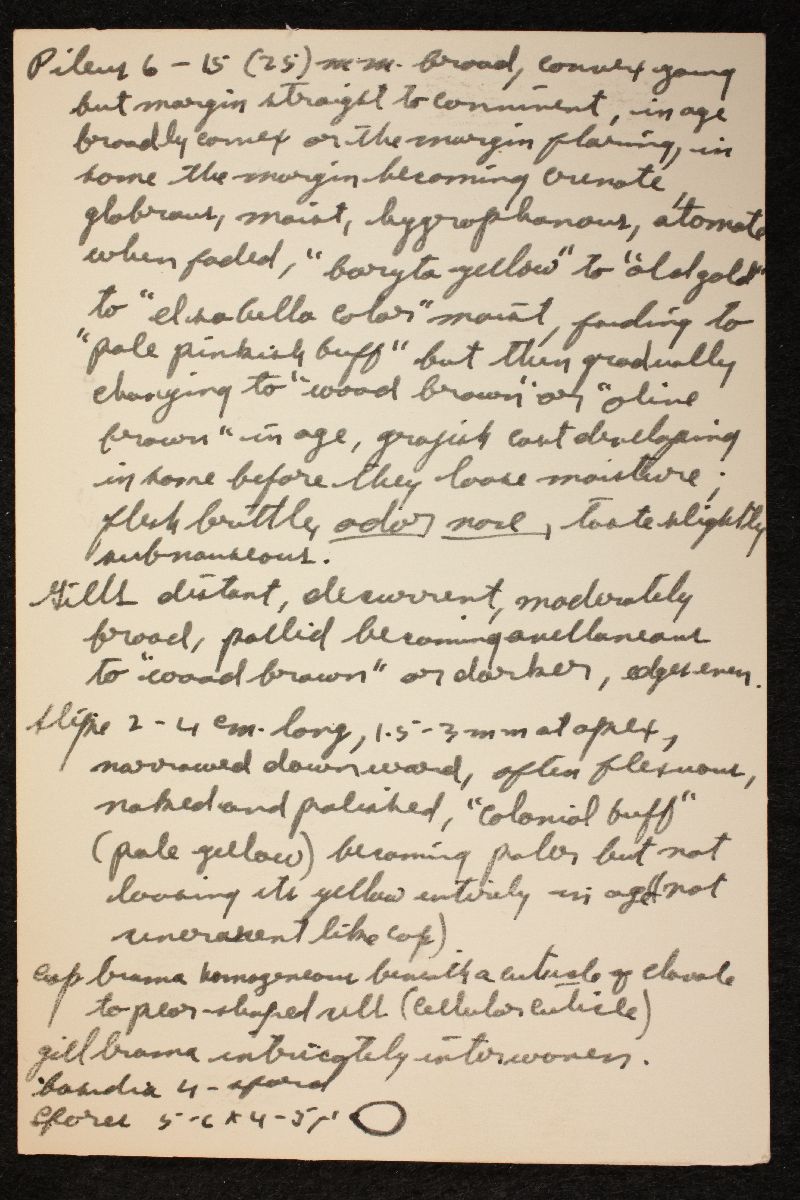 Pileus 6 - 15 (25) mm. broad, convex young
but margin straight to connivent, in age
broadly convex or the margin flaring, in
some the margin becoming crenate,
glabrous, moist, hygrophanous, atomate
when faded, "baryta yellow" to "old gold"
to "elisabella color" moist, fading to
"pale pinkish buff" but then gradually
changing to "wood brown" or "olive
brown" in age, grayish cast developing
in some before they loose moisture;
flesh brittle, odor none, taste slightly
subnauseous.
Gills distant, decurrent, moderately
broad, pallid becoming avellaneous
to "wood brown" or darker, edges even.
Stipe 2 - 4 cm. long, 1.5 - 3 mm at apex,
narrowed downward, often flexuous,
naked and polished, "colonial buff"
(pale yellow) becoming paler but not
loosing its yellow entirely in age (not
cinerascent like cap)
cap trama homogeneous beneath a cuticle of clavate
to pear-shaped cells (cellular cuticle)
gill trama intricately interwoven.
basidia 4 - spored
Spores 5-6 x 4-5 µ